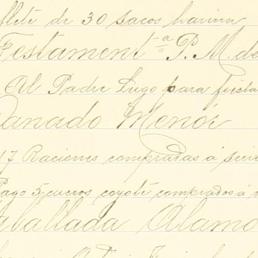 flete de 30 sacos harina
Testament.ª P. M. de
Al Padre Lugo para fiesta
Ganado Menor
17 Raciones compradas á
Pago 5 cueros coyote comprados á
Caballada Alamo